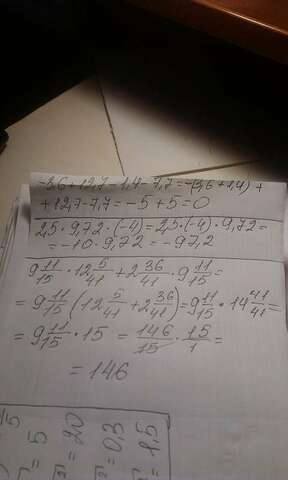 -3,6+12,7-1,4-7,7=-(3,6+1,4)+
+12,7-7,7=-5+5=0
2,5·9,72·(-4)=2,5·(-4)·9,72=
=-10·9,72=-97,2
9 11/15·12 5/41+2 36/41·9 11/15=
=9 11/15(12 5/41+2 36/41)=9 11/15·14 41/41=
=9 11/15·15=146/15·15/1=
=146
=5
=20
=0,3
=1,5